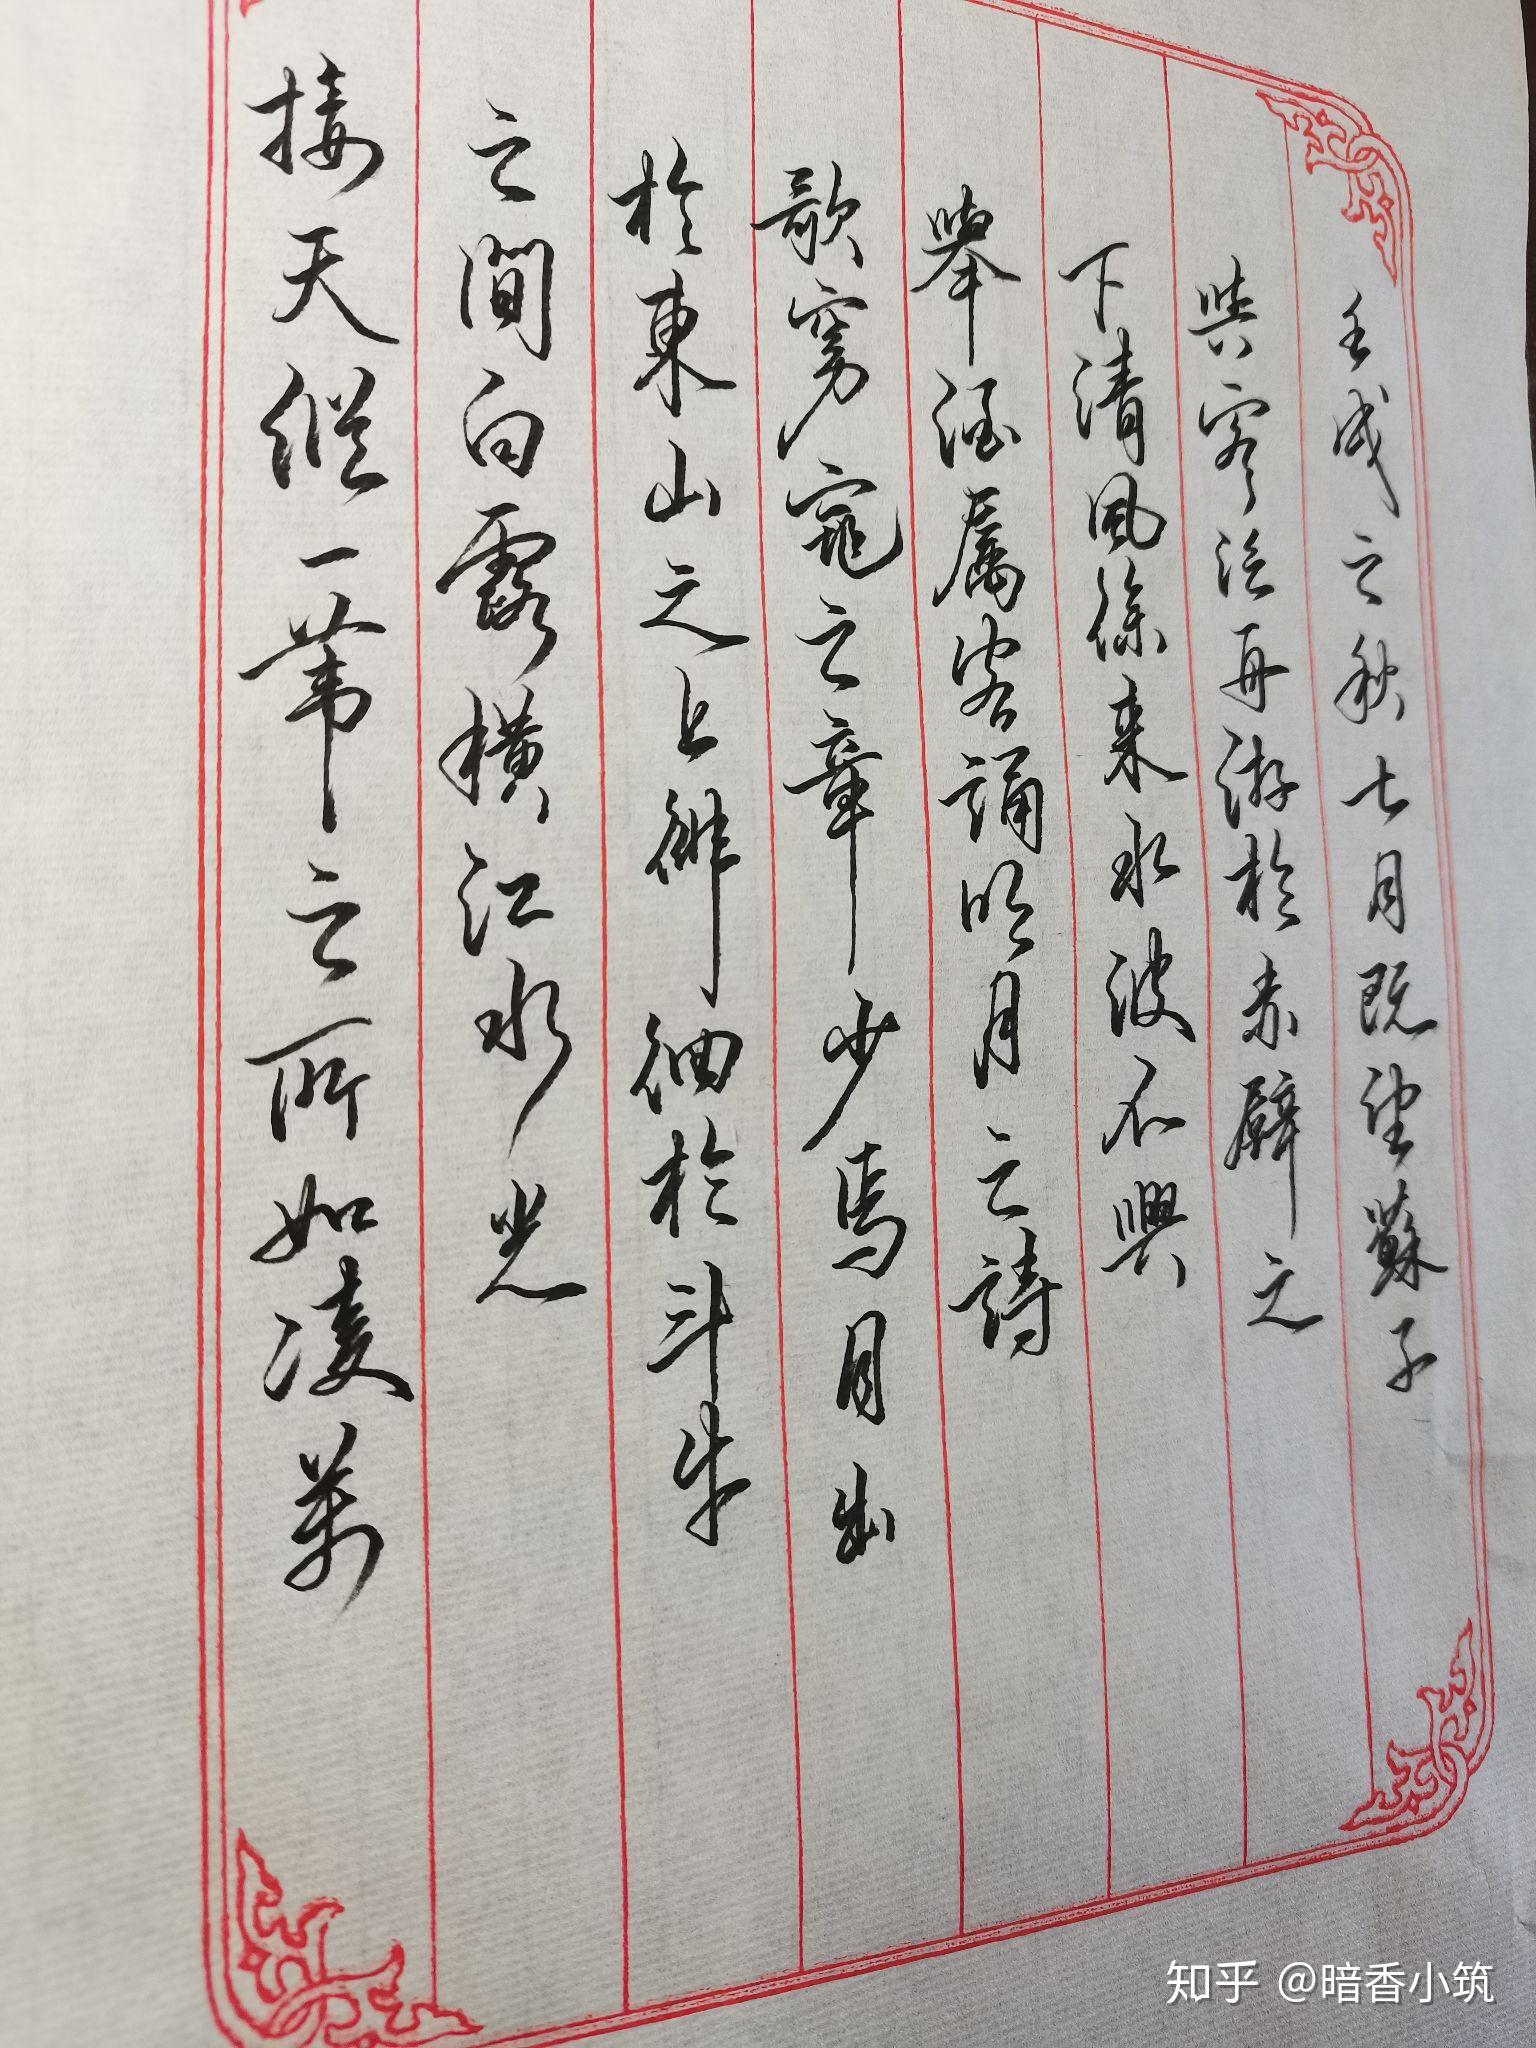 壬戌之秋七月既望蘇子
與客泛舟游於赤壁之
下清風徐来水波不興
舉酒属客誦明月之詩
歌窈窕之章少焉月出
於東山之上徘徊於斗牛
之間白露横江水光
接天縱一葦之所如凌萬
知乎 @暗香小筑